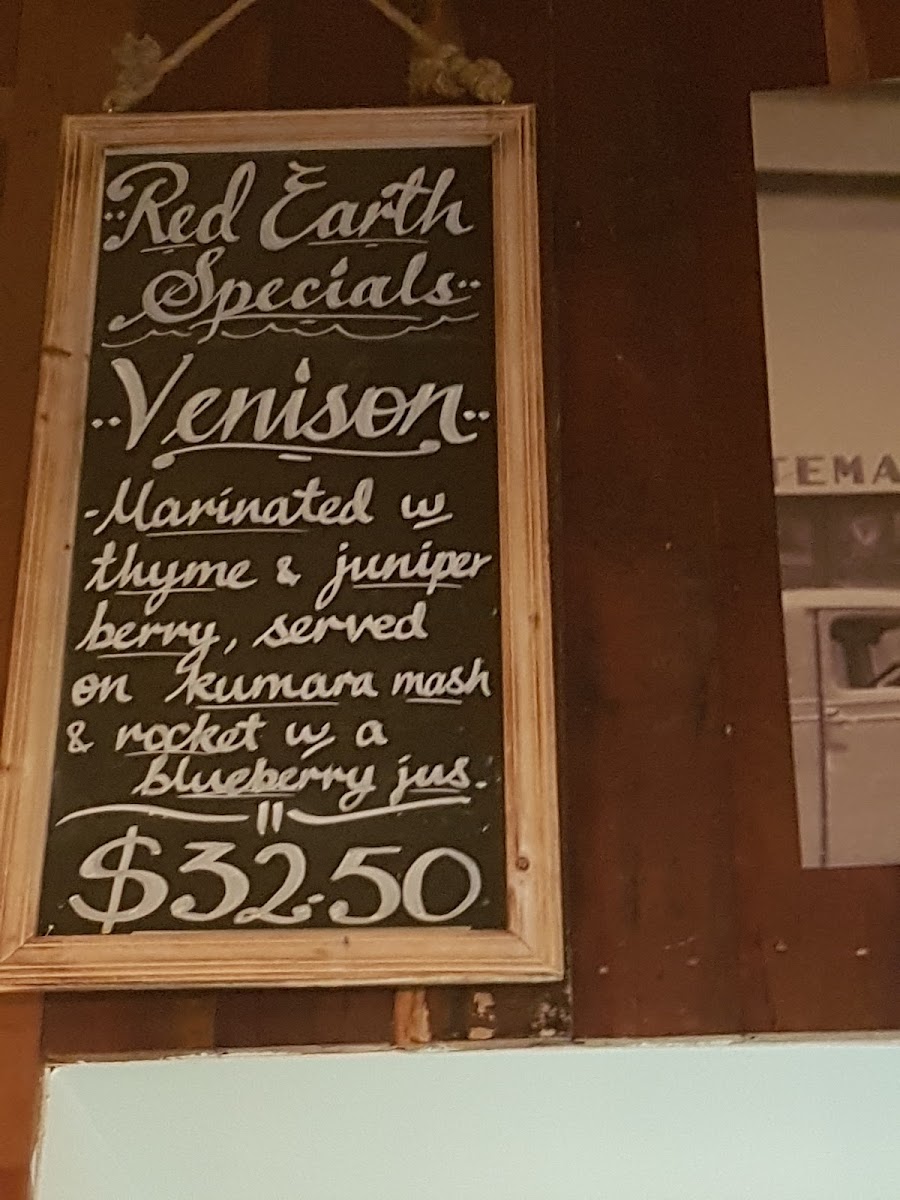 Red Earth
Specials
Venison
- Marinated w
thyme & juniper
berry, served
on kumara mash
& rocket w a
blueberry jus.
$32.50
TEMA